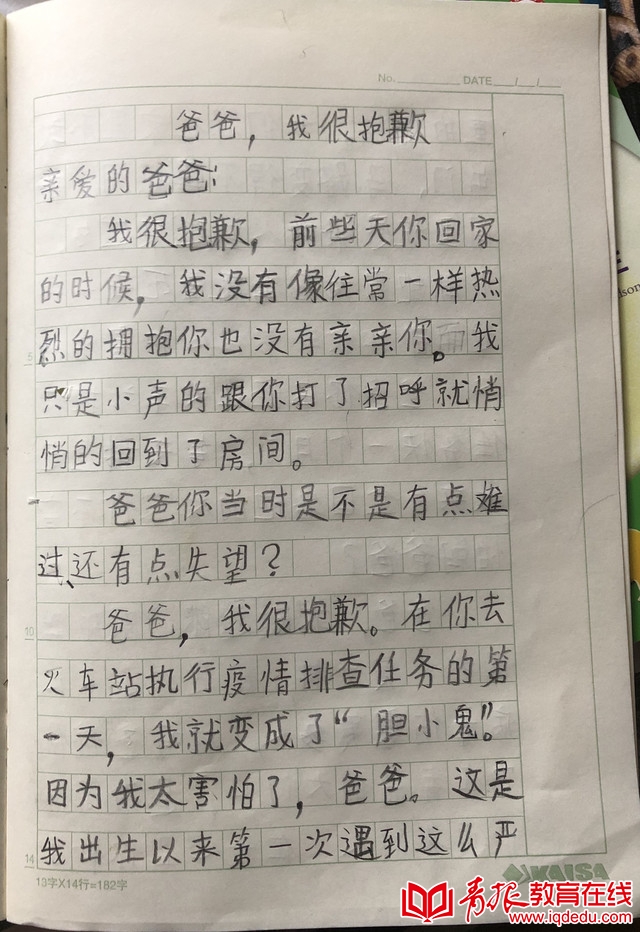 No. DATE / /
爸爸，我很抱歉
亲爱的爸爸:
我很抱歉，前些天你回家
的时候，我没有像往常一样热
烈的拥抱你也没有亲亲你。我
5
只是小声的跟你打了招呼就悄
悄的回到了房间。
爸爸你当时是不是有点难
过、还有点失望？
10
爸爸，我很抱歉。在你去
火车站执行疫情排查任务的第
一天，我就变成了“胆小鬼”。
因为我太害怕了，爸爸。这是
14
我出生以来第一次遇到这么严
13字X14行=182字
KAISA
青报教育在线
www.iqdedu.com